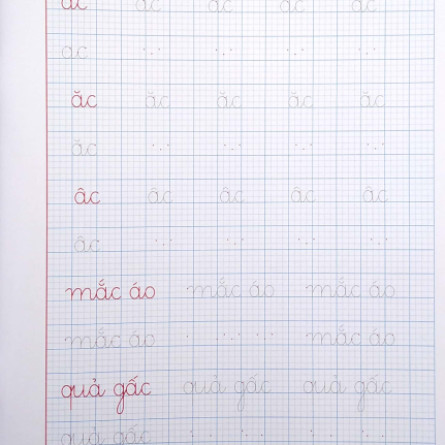 ac ac ac ac ac
ac
ăc ăc ăc ăc ăc
ăc
âc âc âc âc âc
âc
mắc áo mắc áo mắc áo
mắc áo mắc áo
quả gấc quả gấc quả gấc
quả gấc